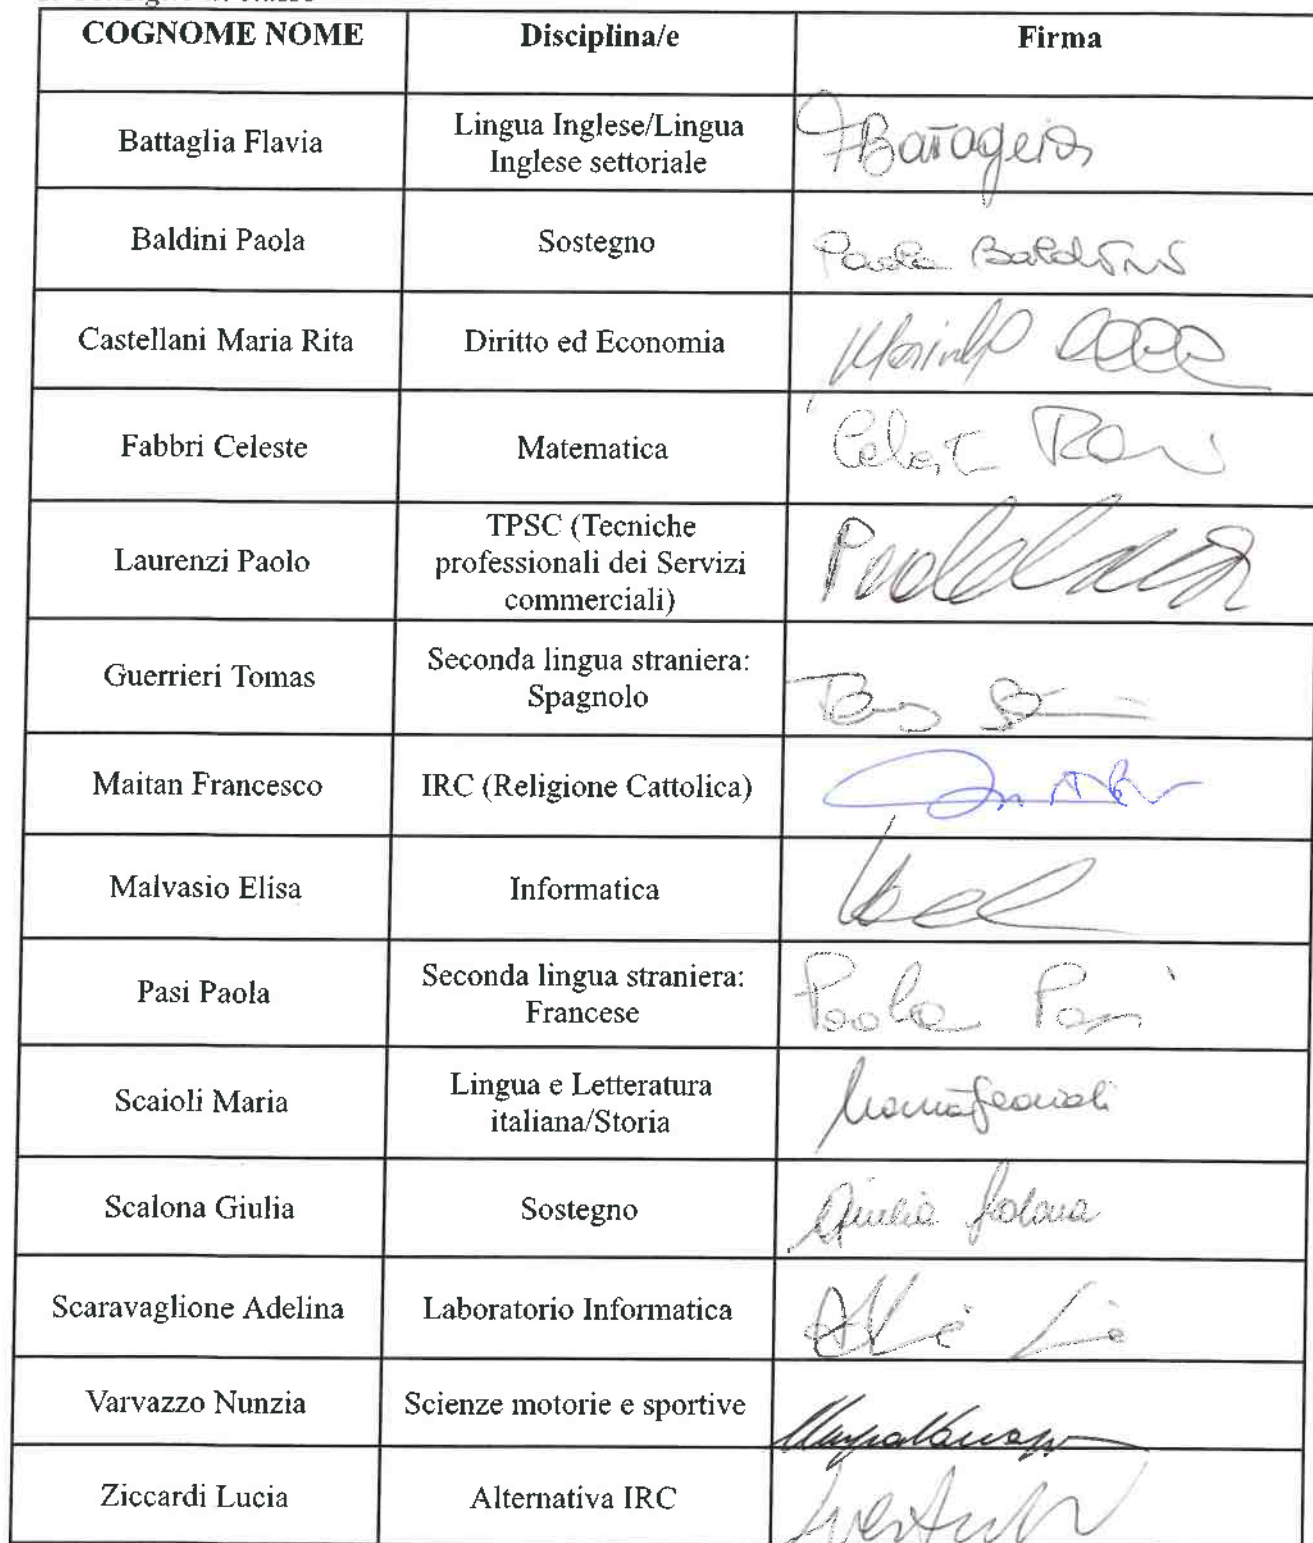 COGNOME NOME Disciplina/e Firma
Battaglia Flavia Lingua Inglese/Lingua
Inglese settoriale
Baldini Paola Sostegno Paola Baldini
Castellani Maria Rita Diritto ed Economia
Fabbri Celeste Matematica
Laurenzi Paolo TPSC (Tecniche
professionali dei Servizi
commerciali)
Guerrieri Tomas Seconda lingua straniera:
Spagnolo
Maitan Francesco IRC (Religione Cattolica)
Malvasio Elisa Informatica
Pasi Paola Seconda lingua straniera:
Francese
Paola Pasi
Scaioli Maria Lingua e Letteratura
italiana/Storia
Maria Scaioli
Scalona Giulia Sostegno Giulia Scalona
Scaravaglione Adelina Laboratorio Informatica
Varvazzo Nunzia Scienze motorie e sportive
Ziccardi Lucia Alternativa IRC